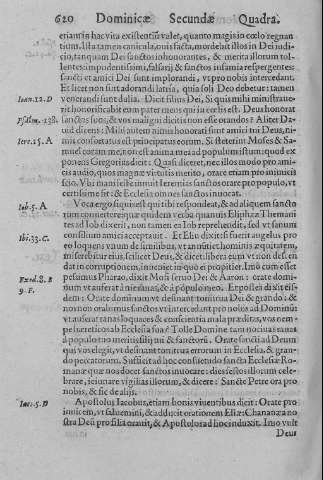 620 Dominicæ Secundæ Quadra.
etiamsi hac vita existentis valet, quanto magis in cœlo regnan
tium. Ista tamen canicula, ouis facta, mordebat illos in Dei iudi-
cio, tanquam Dei sanctos inhonorantes, & merita illorum tol-
lentes impudentissimi, falsarij & sanctos infamia respergentes:
sancti vt amici Dei sunt implorandi, vt pro nobis intercedant.
Et licet non sint adorandi latria, quia soli Deo debetur: tamen
Ioan. 12. D venerandi sunt dulia. Dicit filius Dei, Si quis mihi ministraue-
rit honorificabit eum pater meus qui in cœlis est. Deus honorat
Psalm. 138. sanctos suos, & vos maligni dicitis non esse orandos? Aliter Da-
uid dicens: Mihi autem nimis honorati sunt amici tui Deus, ni-
Iere. 15. A mis confortatus est principatus eorum. Si steterint Moses & Sa-
muel coram me non est anima mea ad populum istum: quod ex
ponens Gregorius dicit: Quasi diceret, nec illos modo pro ami-
cis audio, quos magnæ virtutis merito, orare etiam pro inimicis
scio. Vbi manifeste innuit Ieremias sanctos orare pro populo, vt
certissime sit & Ecclesia omnes sanctos inuocat.
Iob. 5. A Voca ergo si quis est qui tibi respondeat, & ad aliquem sancto
rum conuertere: quæ quidem verba quamuis Eliphaz Themani
tes ad Iob dixerit, non tamen ea Iob reprehendit, sed vt sanum
Ibi. 33. C. consilium acceptauit. Et Eliu dixit: si fuerit angelus pro
eo loquens vnum de similibus, vt annuntiet hominis æquitatem,
miserebitur eius, scilicet Deus, & dicet: libera eum vt non des-
dat in corruptionem, inueni et in quo ei propitier. Imo cum esset
Exod. 8. B pessimus Pharao, dixit Mosi seruo Dei & Aaron: orate domi-
9. F. num vt auferat à me ranas, & à populo meo. Et postea dixit eis-
dem: Orate dominum vt desinant tonitrua Dei & grando: &
non nos orabimus sanctos vt intercedant pro nobis ad Dominum
vt auferat ranas loquaces & conscientia mala præditas, vos nem-
pe hæreticos ab Ecclesia sua? Tolle Domine tam nociuas ranas
à populo tuo meritis filij tui & sanctorum. Orate sancti ad Deum
quos elegit, vt desinant tonitrua errorum in Ecclesia, & gran-
do peccatorum. Sufficit ad hoc consuetudo sanctæ Ecclesiæ Ro-
manæ quæ nos docet sanctos inuocare: dies festos illorum cele-
brare, ieiunare vigilias illorum, & dicere: Sancte Petre ora pro
nobis, & sic de alijs.
Iac. 5. D Apostolus Iacobus, etiam bonis viuentibus dicit: Orate pro
inuicem, vt saluemini, & adducit orationem Eliæ: Chananæa no
stra Deum pro filia orauit, & Apostolos ad hoc induxit. Imo vult
Deus